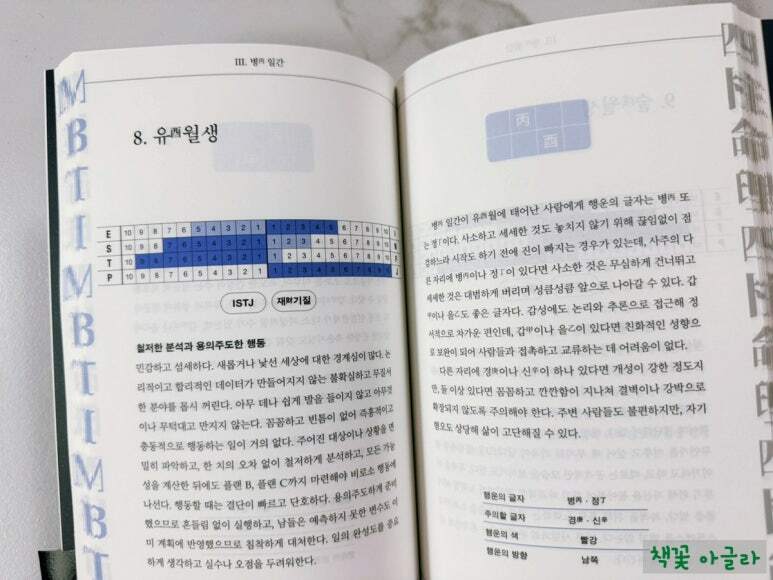 III. 병丙 일간
8. 유酉월생
E 10 9 8 7 6 5 4 3 2 1 1 2 3 4 5 6 7 8 9 10 I
S 10 9 8 7 6 5 4 3 2 1 1 2 3 4 5 6 7 8 9 10 N
T 10 9 8 7 6 5 4 3 2 1 1 2 3 4 5 6 7 8 9 10 F
P 10 9 8 7 6 5 4 3 2 1 1 2 3 4 5 6 7 8 9 10 J
ISTJ 재財기질
철저한 분석과 용의주도한 행동
민감하고 섬세하다. 새롭거나 낯선 세상에 대한 경계심이 많다. 논
리적이고 합리적인 데이터가 만들어지지 않는 불확실하고 무질서
한 분야를 몹시 꺼린다. 아무 데나 쉽게 발을 들이지 않고 아무것
이나 무턱대고 만지지 않는다. 꼼꼼하고 빈틈이 없어 즉흥적이고
충동적으로 행동하는 일이 거의 없다. 주어진 대상이나 상황을 면
밀히 파악하고, 한 치의 오차 없이 철저하게 분석하고, 모든 가능
성을 계산한 뒤에도 플랜 B, 플랜 C까지 마련해야 비로소 행동에
나선다. 행동할 때는 결단이 빠르고 단호하다. 용의주도하게 준비
했으므로 흔들림 없이 실행하고, 남들은 예측하지 못한 변수도 이
미 계획에 반영했으므로 침착하게 대처한다. 일의 완성도를 중요
하게 생각하고 실수나 오점을 두려워한다.
MBTIMBTIMBT
丙
酉
병丙 일간이 유酉월에 태어난 사람에게 행운의 글자는 병丙 또
는 정丁이다. 사소하고 세세한 것도 놓치지 않기 위해 끊임없이 점
검하느라 시작도 하기 전에 진이 빠지는 경우가 있는데, 사주의 다
른 자리에 병丙이나 정丁이 있다면 사소한 것은 무심하게 건너뛰고
세세한 것은 대범하게 버리며 성큼성큼 앞으로 나아갈 수 있다. 갑
甲이나 을乙도 좋은 글자다. 감성에도 논리와 추론으로 접근해 정
서적으로 차가운 편인데, 갑甲이나 을乙이 있다면 친화적인 성향으
로 보완이 되어 사람들과 접촉하고 교류하는 데 어려움이 없다.
다른 자리에 경庚이나 신辛이 하나 있다면 개성이 강한 정도지
만, 둘 이상 있다면 꼼꼼하고 깐깐함이 지나쳐 결벽이나 강박으로
확장되지 않도록 주의해야 한다. 주변 사람들도 불편하지만, 자기
행운의 글자 병丙 · 정丁
주의할 글자 경庚 · 신辛
행운의 색 빨강
행운의 방향 남쪽
四柱命理四柱命理四
책꽃 아글라